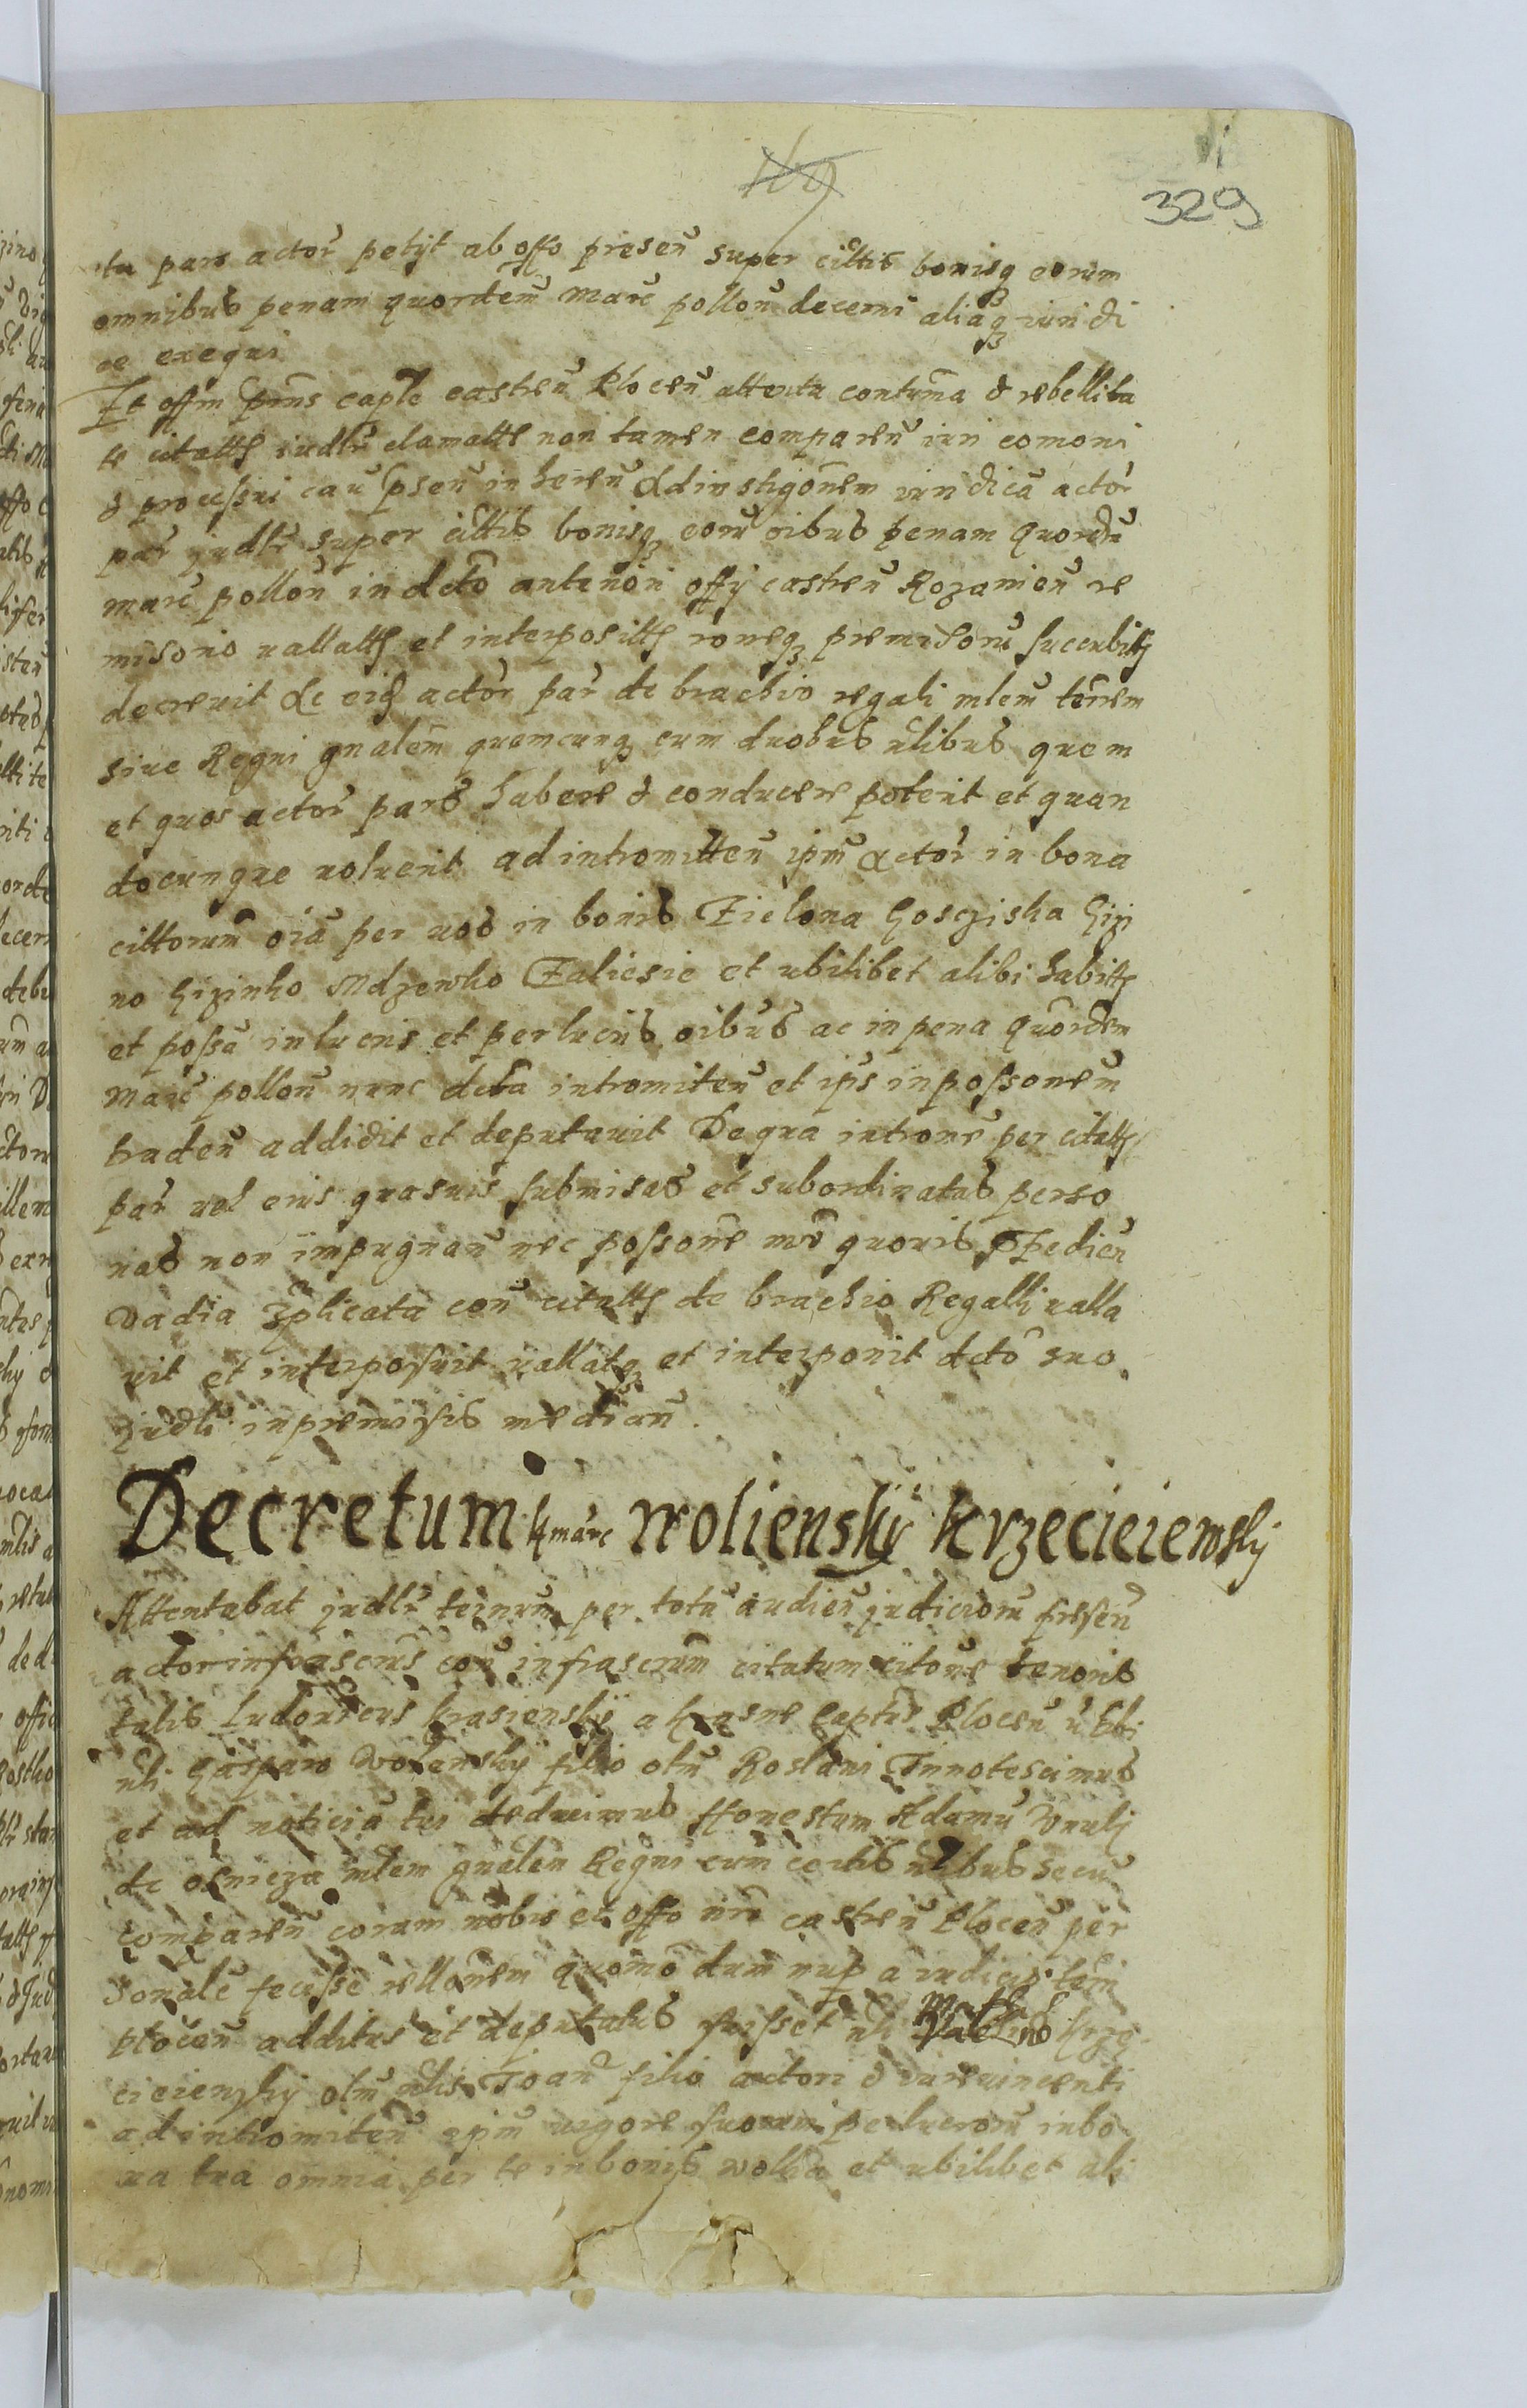 329
ta pars actor petyt ab offo presen super cittis bonisq eorum
omnibus penam quordem marc pollon decerni aliaq iuridi
ce exequi
Et offm pnns caple castren Plocen attenta contuma & rebellita
te citatts iudlr clamatts non tamen comparen iuri comoni
& processui cau psen in heren ad instigonem iuridica actor
par judlr super cittis bonisq eoru oibus penam quorde
marc pollon in dcto anteriori offy castren Rozanien re
misorio vallatts et interposittts roneq premisoru sucubitts
decrevit Ac eid actor par de brachio regali mlem terrem
sive Regni gnalem quemcunq cum duobus nlibus quem
et quos actor pars habere & conducere poterit et quan
docunque voluerit ad intromitten ipm actor in bona
cittorum oia per uos in bonis Zielona Goscziska Gizi
no Gizinko Mdzewko Zaliesie et ubilibet alibi habitts
et possa in lucris et perlucris oibus ac in pena quordem
marc pollon nunc dcta intromiten et ips in possonem
traden addidit et deputavit De qua introne per citatts
par vel eius quasuis submisas et subordinatas perso
nas non impugnan nec possone mo quovis impedien
vadia 3plicata con citatts de brachio Regalli valla
vit et interposuit vallatq et interponit dcto suo
judli in premissis median.
Decretum 4 marc Wolienskÿ Krzecieiewsky
Attentabat judlr termm per totu audien judicioru presen
actor infrascrus con infrascrum citatum citone tenoris
talis Ludovicus Krasienskÿ a Krasne captus Plocen v Tibi
nli Gaspar Wolenskÿ filio olm Roslani Innotescimus
et ad noticia tui deducimus Honestum Adamu
de mlem gnalem Regni cum certis nlibus secu
comparen coram nobis et offo nro castren Plocen per
sonale fecisse rellonem quomo dum nup a iudicio terri
plocen additus et deputatus fuisset nli Krze
cieiewsky olm nlis Joan filio actori & iurevincenti
ad intromiten ipm vigore suorum perlucroru in bo
na tua omnia per te in bonis Wolka et ubilibet ali